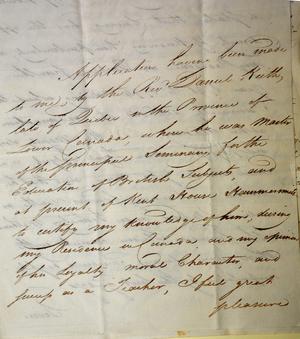 Application having been made
to me, by the Revd Daniel Keith,
late of Quebec in the Province of
Lower Canada where he was Master
of the principal Seminary for the
Education of British Subjects and
at present of Kent House Hammersmith
to certify my Knowledge of him, during
my Residence in Canada and my opinion
of his Loyalty moral Character, and
as a Teacher, I feel great
pleasure